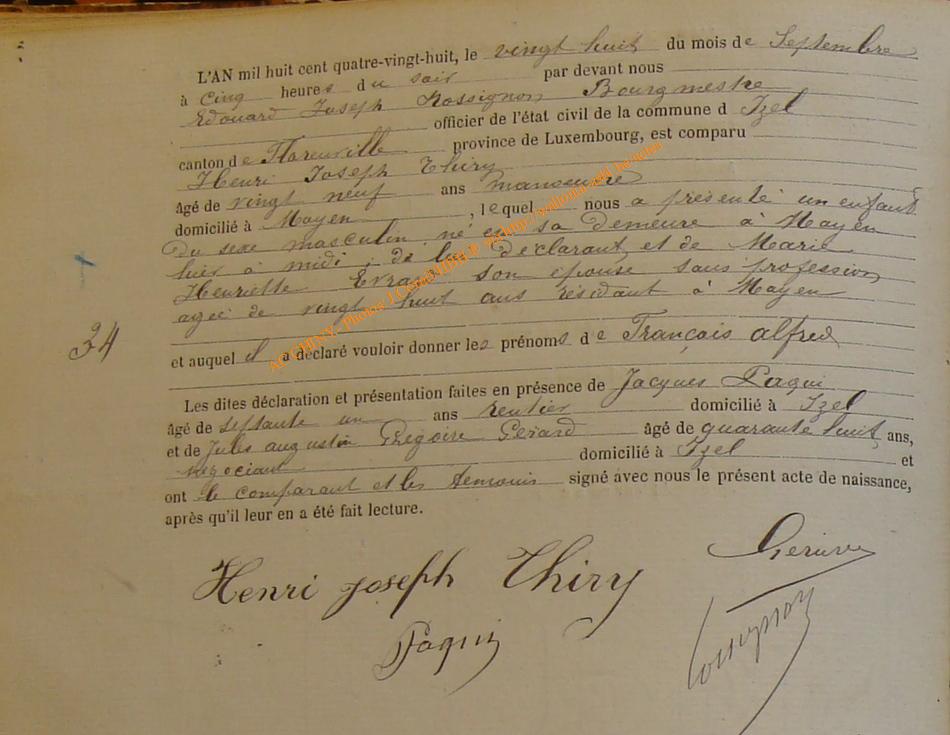 L'AN mil huit cent quatre-vingt-huit, le vingt huit du mois de Septembre
à cinq heures du soir par devant nous
Edouard Joseph Rossignon Bourgmestre
officier de l'état civil de la commune d Izel
canton de Florenville province de Luxembourg, est comparu
Henri Joseph Thiry
âgé de vingt neuf ans manoeuvre
domicilié à Moyen, lequel nous a présenté un enfant
du sexe masculin, né en sa demeure à Moyen
hier à midi, de lui déclarant et de Marie
Henriette Evrard son épouse sans profession
agée de vingt huit ans résidant à Moyen
34
et auquel il a déclaré vouloir donner les prénoms de François alfred
Les dites déclaration et présentation faites en présence de Jacques Paqui
âgé de septante un ans rentier domicilié à Izel
et de Jules augustin Grégoire Gérard âgé de quarante huit ans,
négociant domicilié à Izel et
ont le comparant et les témoins signé avec nous le présent acte de naissance,
après qu'il leur en a été fait lecture.
Henri Joseph Thiry
Paqui
Rossignon